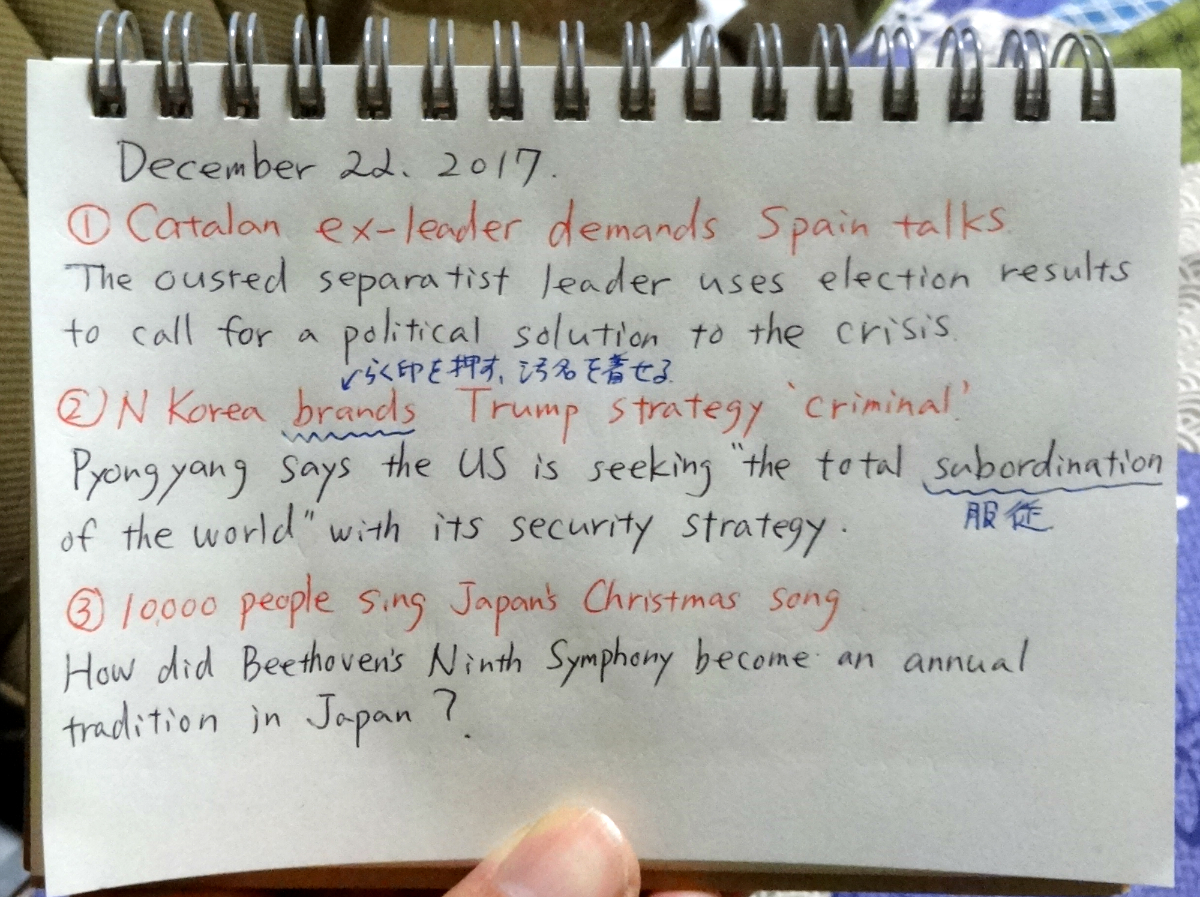 December 22、2017.
① Catalan ex-leader demands Spain talks.
The ousted separatist leader uses election results
to call for a political solution to the crisis.
↙らく印を押す、汚名を着せる
② N Korea brands Trump strategy 'criminal'
Pyongyang says the US is seeking "the total subordination
服従
of the world" with its security strategy.
③ 10,000 people sing Japan's Christmas song
How did Beethoven's Ninth Symphony become an annual
tradition in Japan?